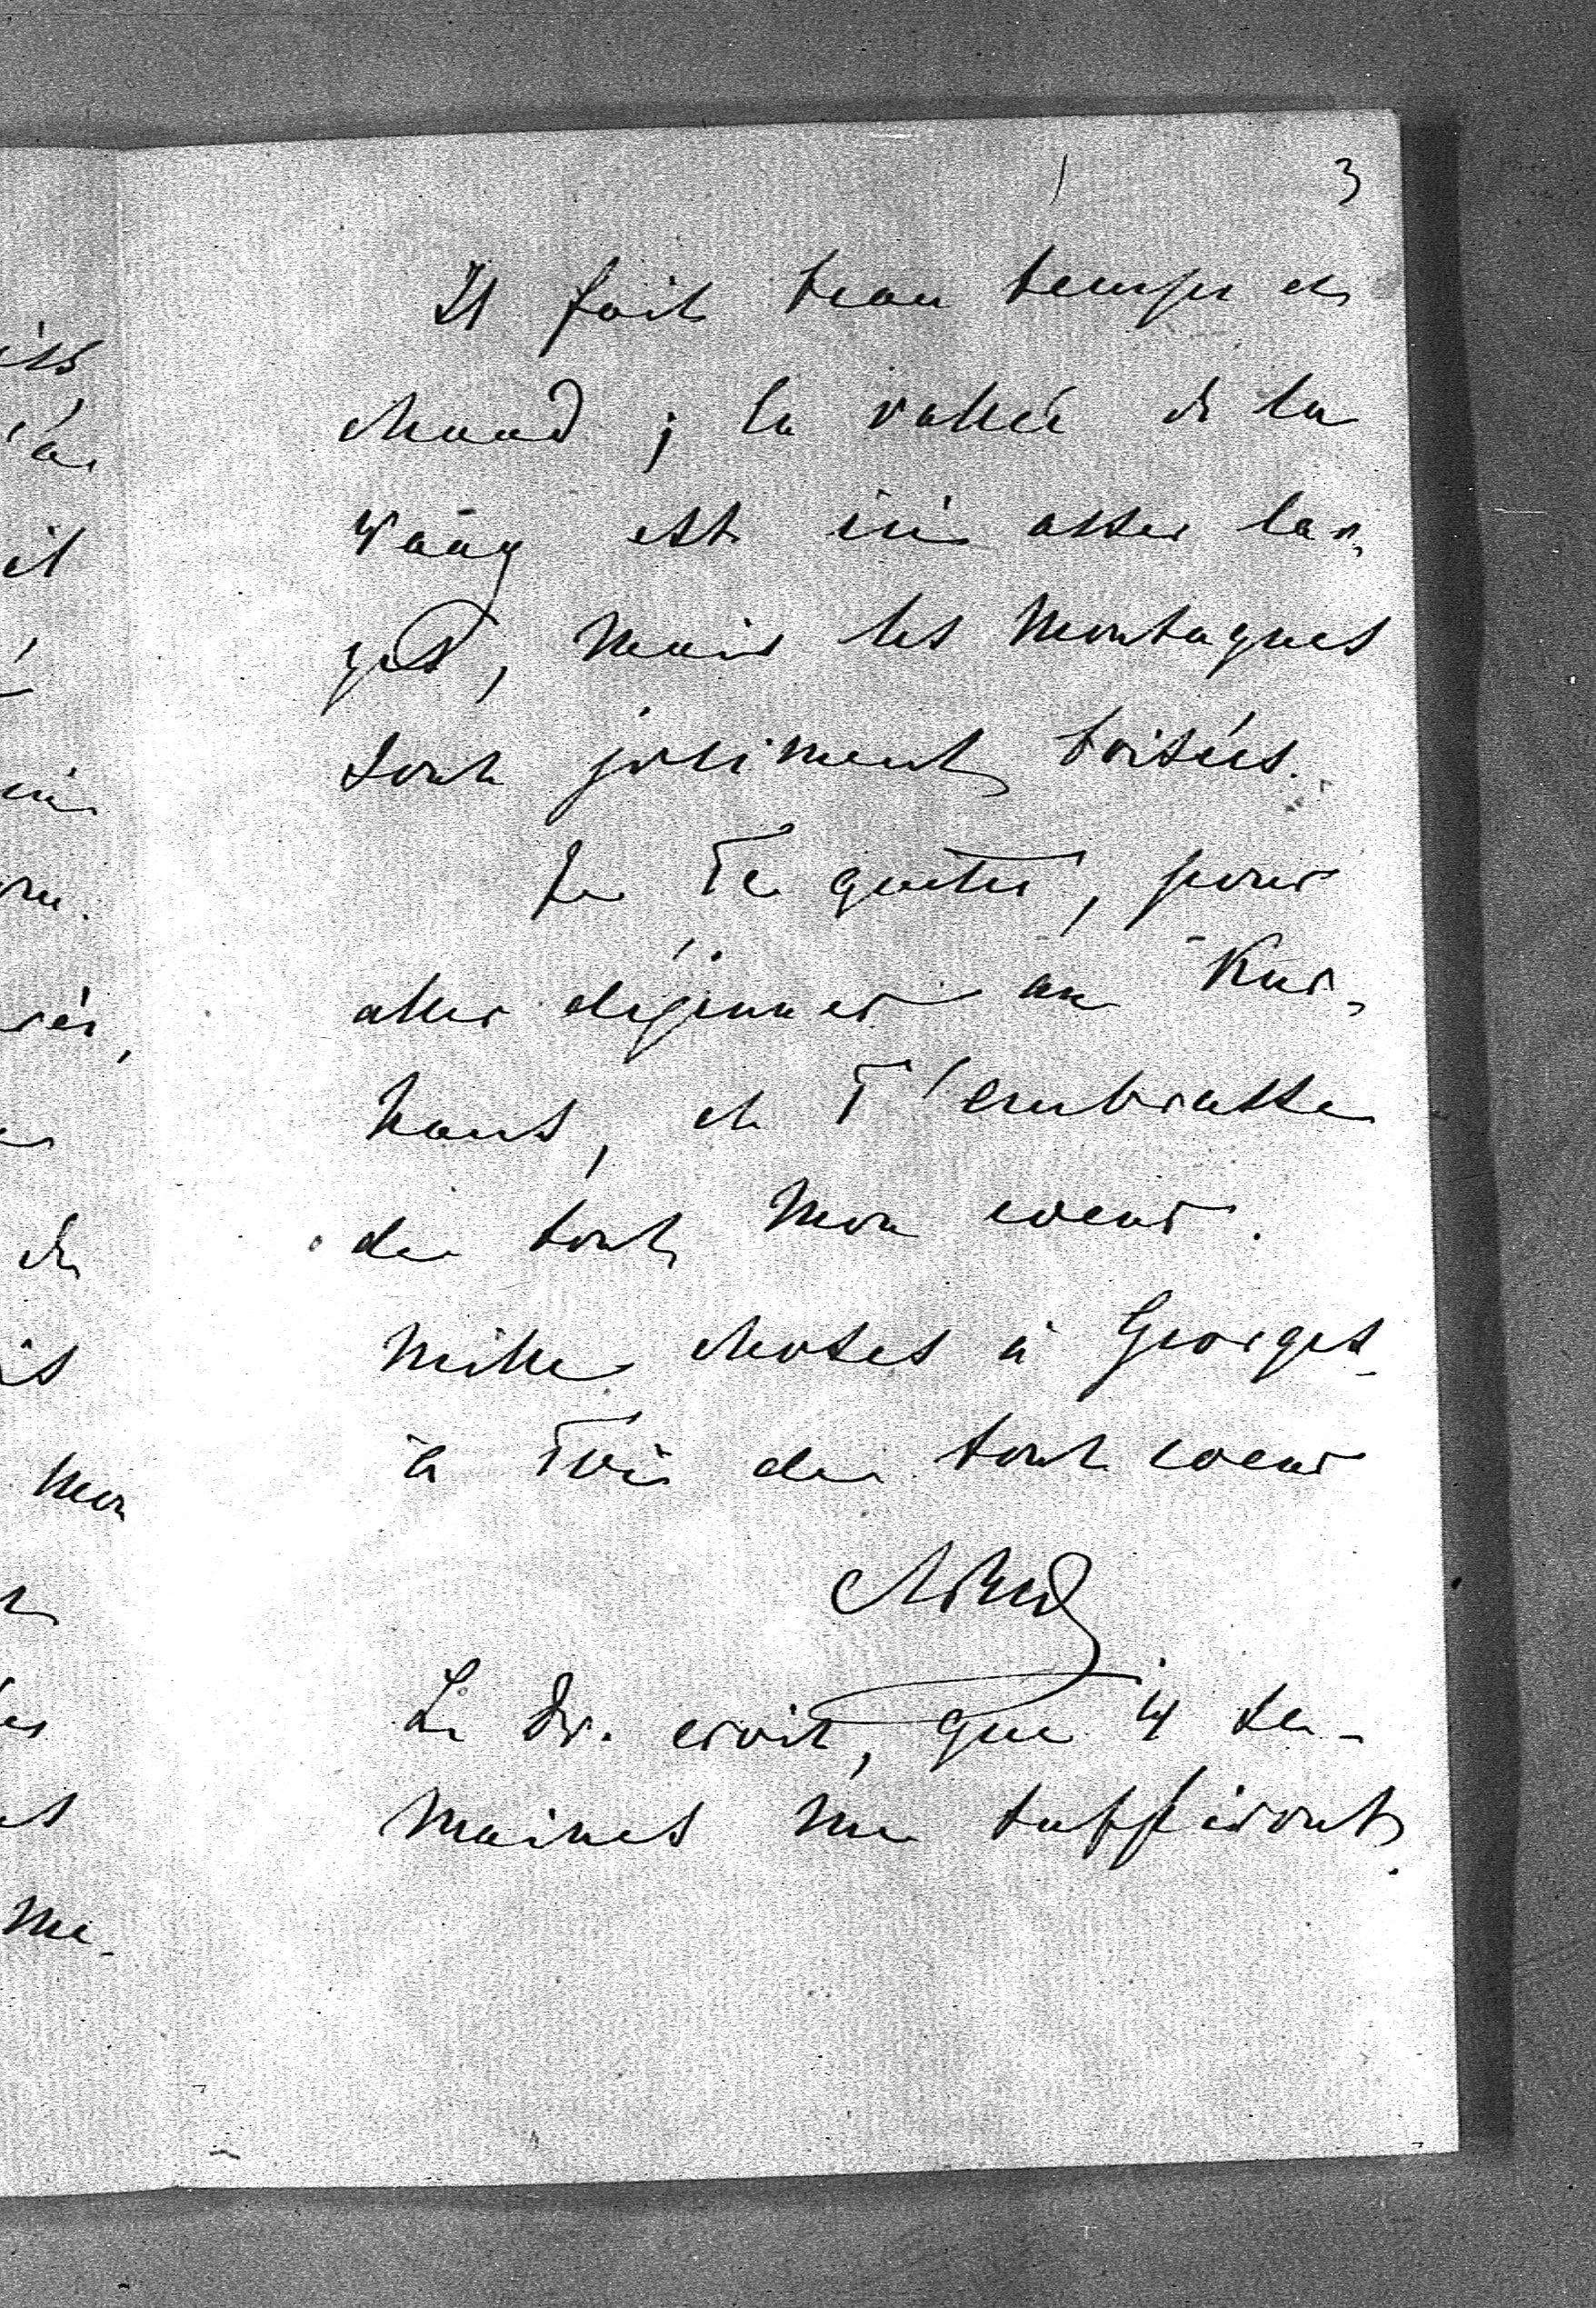 3
Il fait beau temps et
chaud ; la vallée de la
Waag est ici assez lar-
ge, mais les montagnes
sont joliment boisées.
Je Te quitte, pour
aller déjeuner au Kur-
haus, et T'embrasse
de tout mon coeur.
Mille choses à Georges
à Toi de tout coeur
Le Dr. croit, que 4 se-
maines me suffiront.